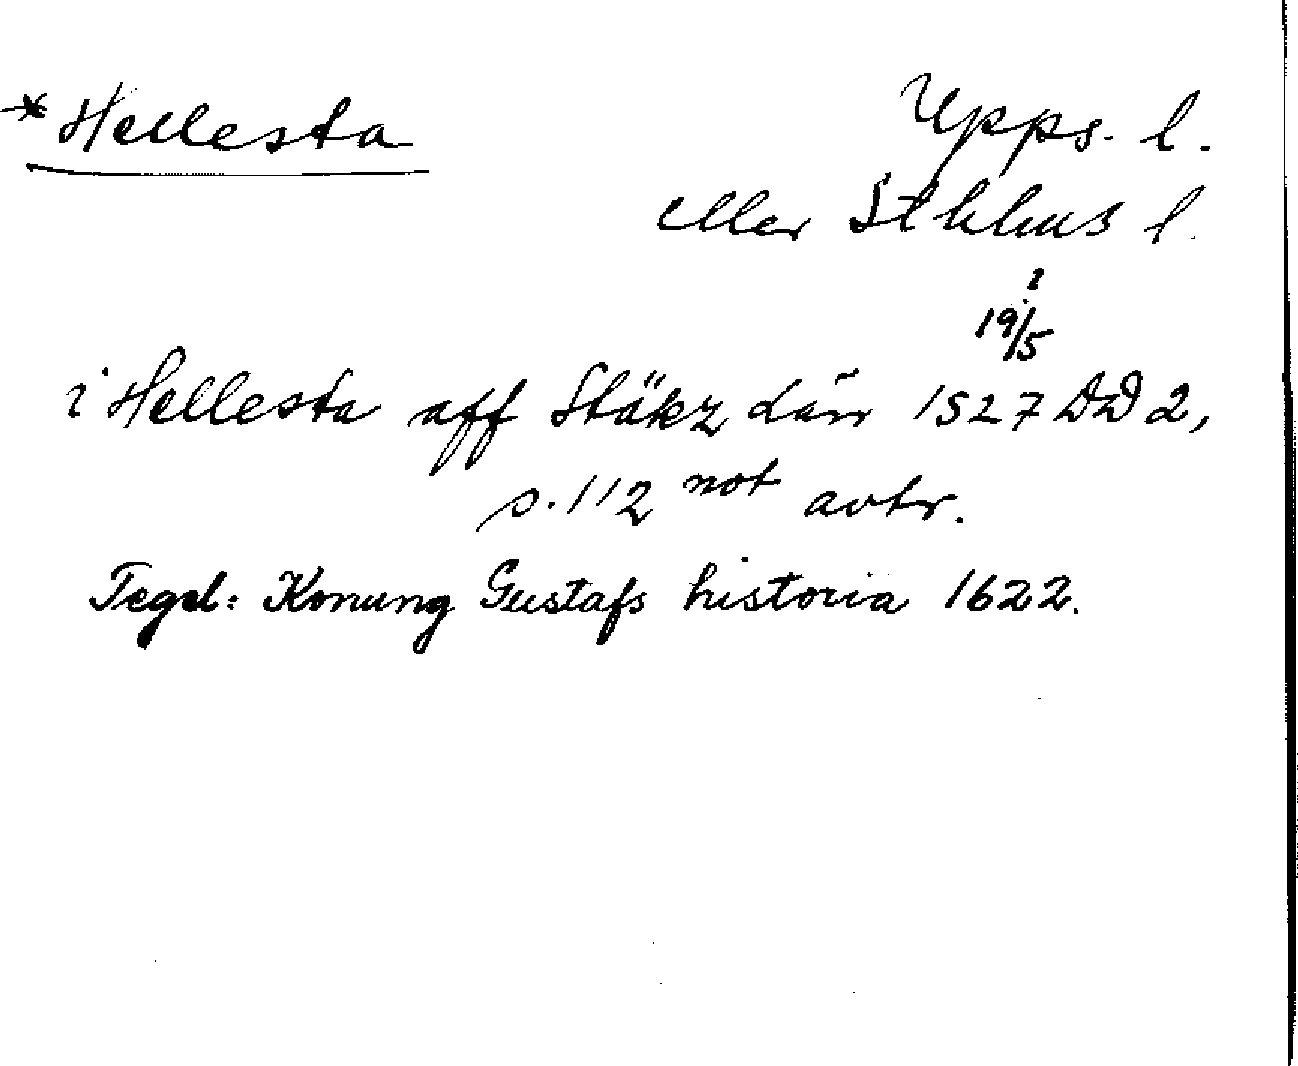 * Hellesta Upps. l.
eller Sthlms l.
i
19/5
i Hellesta aff Stäkz län 1527 DD 2,
s. 112 not avtr.
Tegel: Konung Gustafs historia 1622.